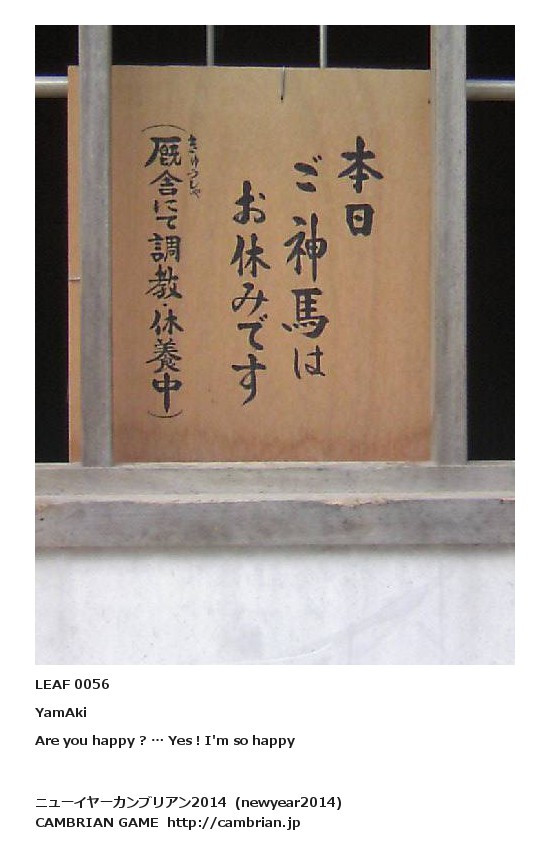 本日
ご神馬は
お休みです
(厩舎にて調教・休養中)
きゅうしゃ
LEAF 0056
YamAki
Are you happy ? … Yes ! I'm so happy
ニューイヤーカンブリアン2014 (newyear2014)
CAMBRIAN GAME http://cambrian.jp